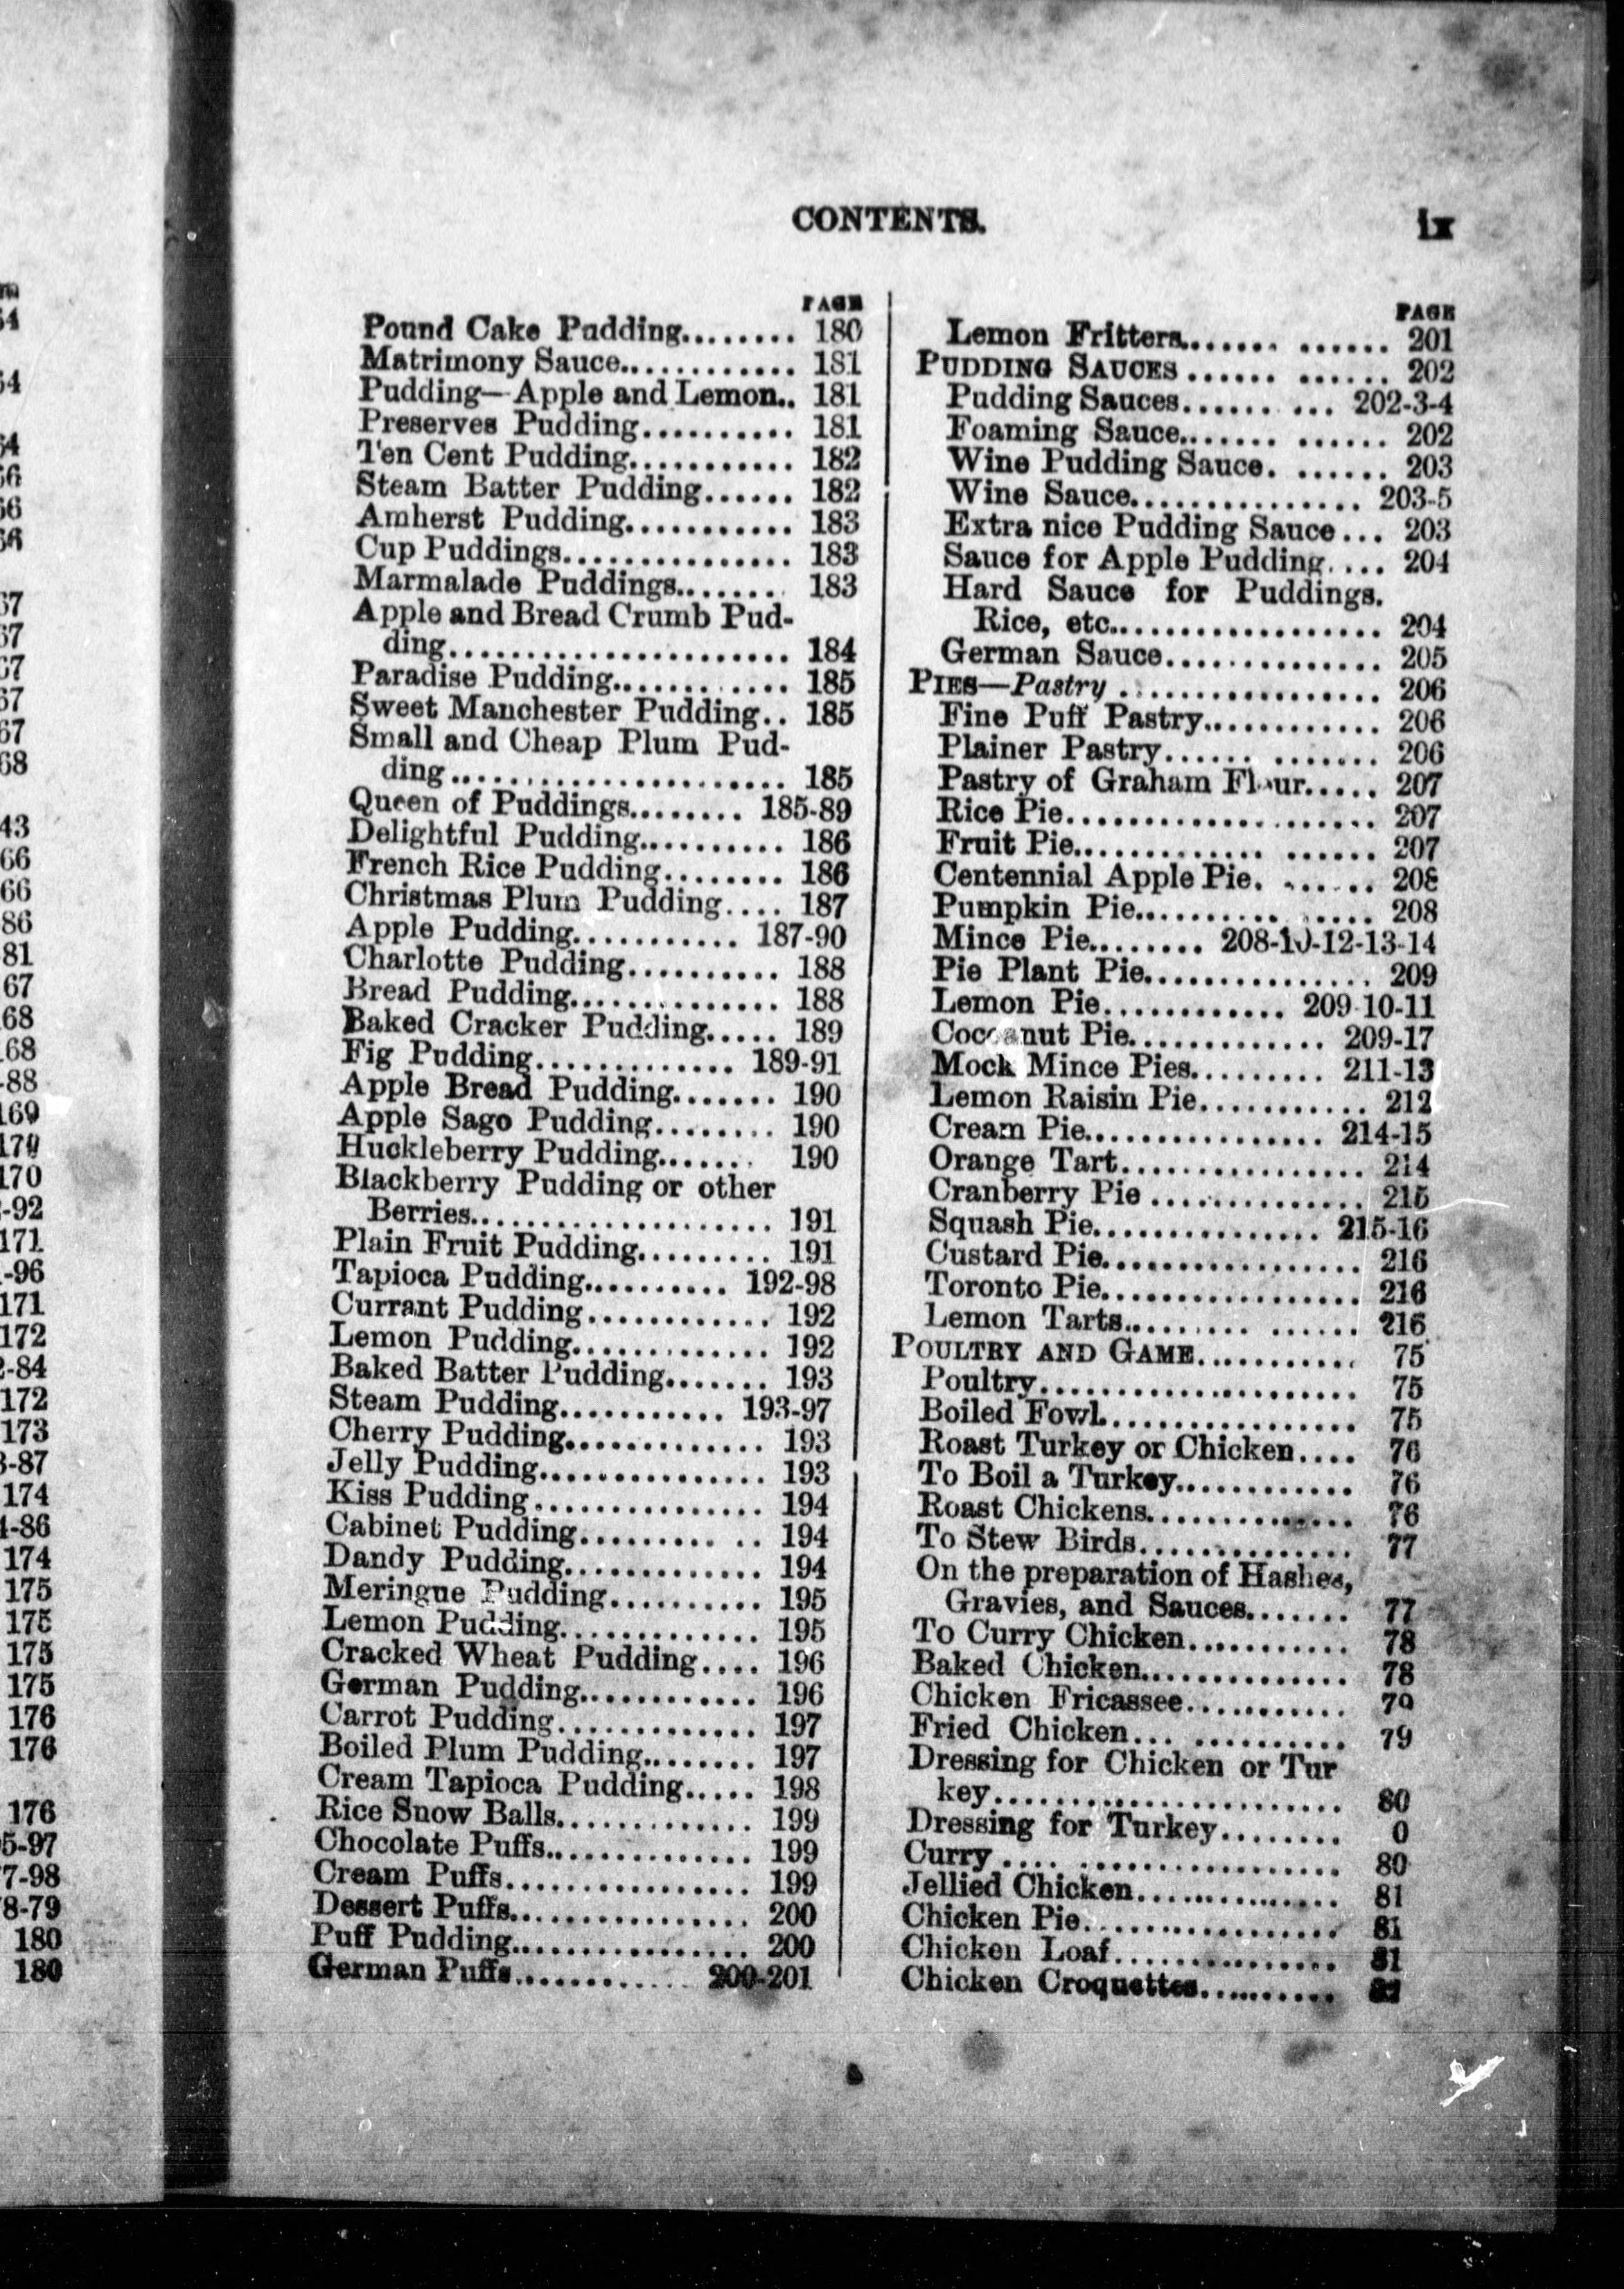 CONTENTS.
ix
PAGE
Pound Cake Pudding........ 180
Matrimony Sauce............ 181
Pudding—Apple and Lemon.. 181
Preserves Pudding.......... 181
Ten Cent Pudding........... 182
Steam Batter Pudding...... 182
Amherst Pudding........... 183
Cup Puddings............... 183
Marmalade Puddings....... 183
Apple and Bread Crumb Pud-
ding...................... 184
Paradise Pudding........... 185
Sweet Manchester Pudding.. 185
Small and Cheap Plum Pud-
ding...................... 185
Queen of Puddings........ 185-89
Delightful Pudding.......... 186
French Rice Pudding........ 186
Christmas Plum Pudding.... 187
Apple Pudding........... 187-90
Charlotte Pudding.......... 188
Bread Pudding.............. 188
Baked Cracker Pudding..... 189
Fig Pudding............. 189-91
Apple Bread Pudding....... 190
Apple Sago Pudding........ 190
Huckleberry Pudding....... 190
Blackberry Pudding or other
Berries.................... 191
Plain Fruit Pudding......... 191
Tapioca Pudding.......... 192-98
Currant Pudding............ 192
Lemon Pudding............. 192
Baked Batter Pudding....... 193
Steam Pudding........... 193-97
Cherry Pudding............. 193
Jelly Pudding............... 193
Kiss Pudding............... 194
Cabinet Pudding.......... .. 194
Dandy Pudding............. 194
Meringue Pudding.......... 195
Lemon Pudding............. 195
Cracked Wheat Pudding.... 196
German Pudding............ 196
Carrot Pudding............. 197
Boiled Plum Pudding........ 197
Cream Tapioca Pudding..... 198
Rice Snow Balls............. 199
Chocolate Puffs.............. 199
Cream Puffs................ 199
Dessert Puffs................ 200
Puff Pudding................ 200
German Puffs............ 200-201
PAGE
Lemon Fritters....... ...... 201
PUDDING SAUCES ...... ...... 202
Pudding Sauces...... ... 202-3-4
Foaming Sauce....... ...... 202
Wine Pudding Sauce. ...... 203
Wine Sauce................ 203-5
Extra nice Pudding Sauce... 203
Sauce for Apple Pudding.... 204
Hard Sauce for Puddings.
Rice, etc.................. 204
German Sauce.............. 205
PIES—Pastry ................. 206
Fine Puff Pastry............ 206
Plainer Pastry...... ....... 206
Pastry of Graham Flour..... 207
Rice Pie.................... 207
Fruit Pie............. ...... 207
Centennial Apple Pie. ...... 208
Pumpkin Pie.......... ..... 208
Mince Pie........ 208-10-12-13-14
Pie Plant Pie............... 209
Lemon Pie............ 209-10-11
Cocoanut Pie............. 209-17
Mock Mince Pies......... 211-13
Lemon Raisin Pie........... 212
Cream Pie................ 214-15
Orange Tart................ 214
Cranberry Pie .............. 215
Squash Pie............... 215-16
Custard Pie................. 216
Toronto Pie................. 216
Lemon Tarts......... ...... 216
POULTRY AND GAME........... 75
Poultry..................... 75
Boiled Fowl................. 75
Roast Turkey or Chicken.... 76
To Boil a Turkey............ 76
Roast Chickens.............. 76
To Stew Birds.............. 77
On the preparation of Hashes,
Gravies, and Sauces....... 77
To Curry Chicken........... 78
Baked Chicken.............. 78
Chicken Fricassee........... 79
Fried Chicken... .......... 79
Dressing for Chicken or Tur
key....................... 80
Dressing for Turkey........ 0
Curry .... ................. 80
Jellied Chicken.............. 81
Chicken Pie................. 81
Chicken Loaf............... 81
Chicken Croquettes..........